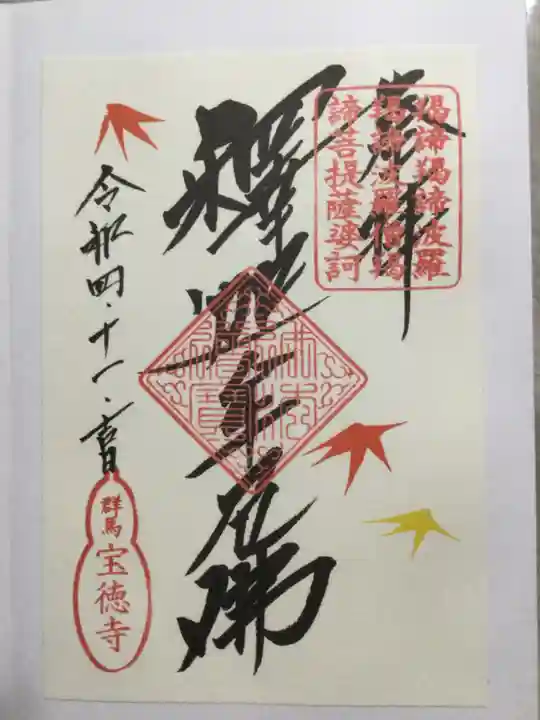 奉拝
羯諦羯諦波羅
羯諦波羅僧羯
諦菩提薩婆訶
釋迦牟尼佛
令和四・十一・吉日
群馬
宝徳寺